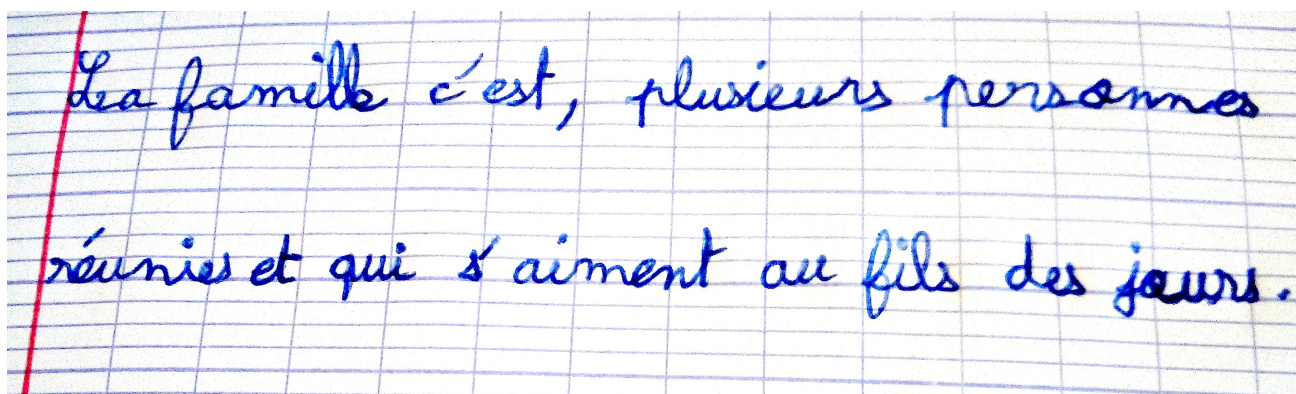 La famille c'est, plusieurs personnes
réunies et qui s'aiment au fils des jours.